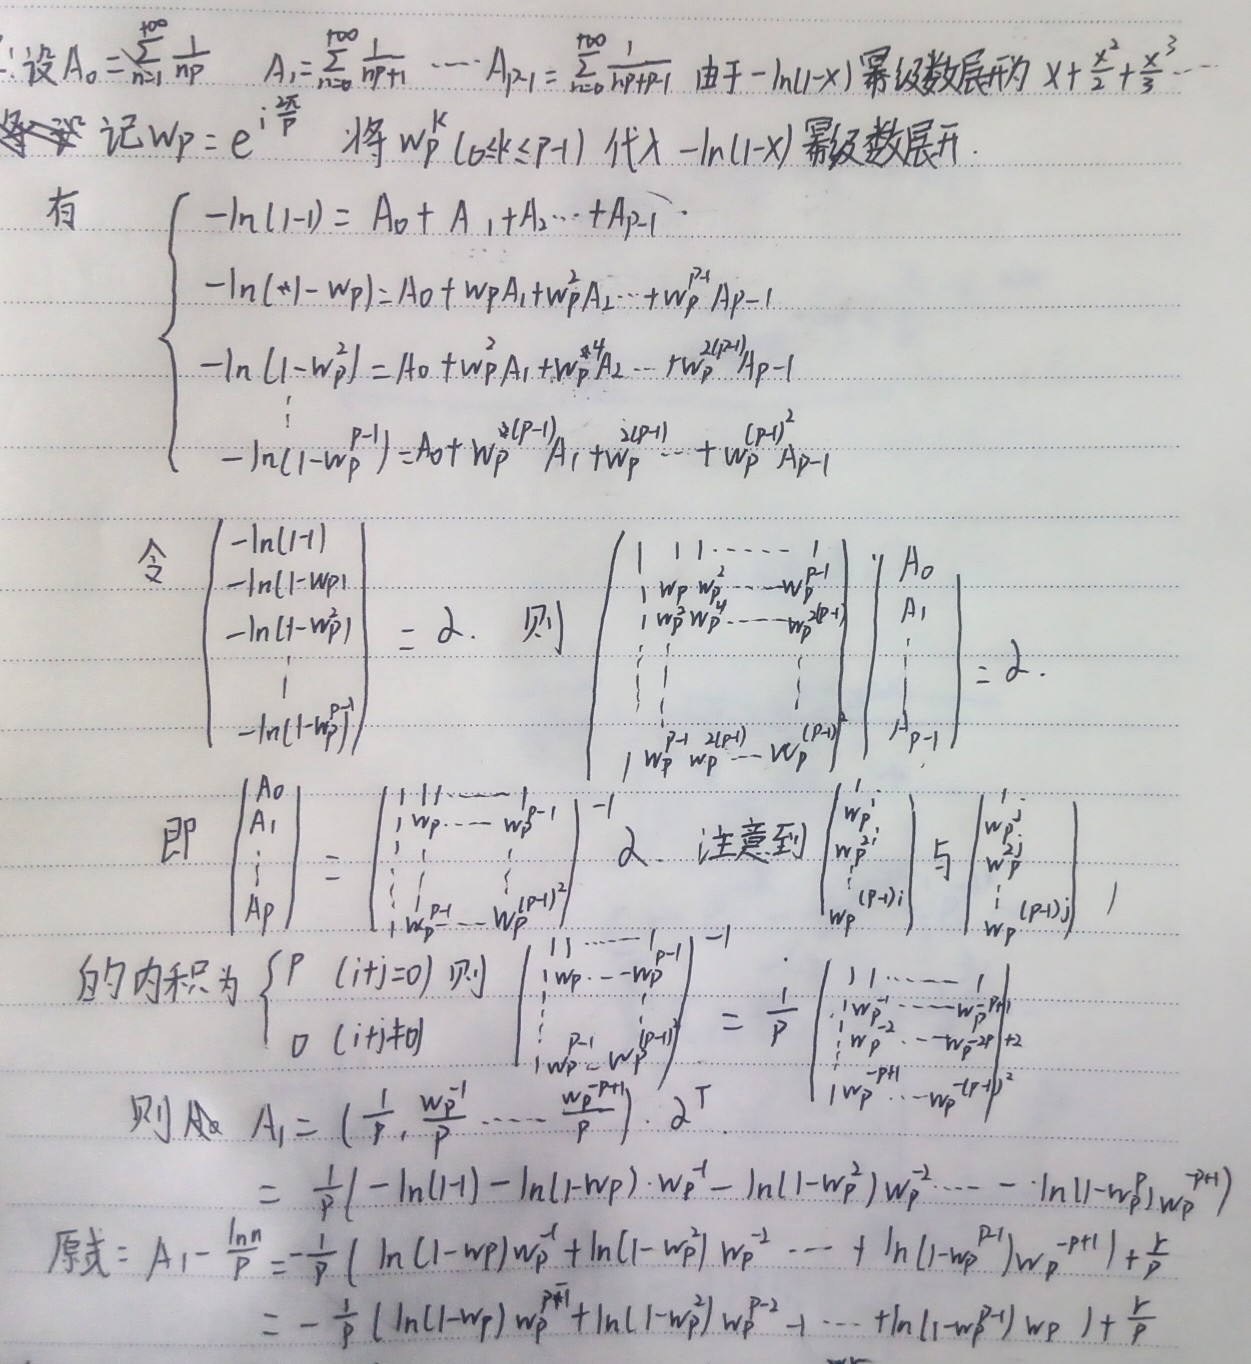 :设A₀=∑_{n=1}^{+∞} 1/np  A₁=∑_{n=0}^{+∞} 1/(np+1) ⋯ A_{p-1}=∑_{n=0}^{+∞} 1/(np+p-1) 由于-ln(1-x)幂级数展开为 x+x²/2+x³/3⋯
记Wp=e^{i2π/p} 将Wp^k(0≤k≤p-1) 代入-ln(1-x)幂级数展开.
有
-ln(1-1)=A₀+A₁+A₂⋯+A_{p-1}.
-ln(1-Wp)=A₀+WpA₁+Wp²A₂⋯+Wp^{p-1}A_{p-1}
-ln(1-Wp²)=A₀+Wp²A₁+Wp⁴A₂⋯+Wp^{2(p-1)}A_{p-1}
⋮
-ln(1-Wp^{p-1})=A₀+Wp^{(p-1)}A₁+Wp^{2(p-1)}⋯+Wp^{(p-1)²}A_{p-1}
令 (-ln(1-1) -ln(1-Wp) -ln(1-Wp²) ⋮ -ln(1-Wp^{p-1})) = α. 则 (1 1 1⋯1 1 Wp Wp²⋯Wp^{p-1} 1 Wp² Wp⁴⋯Wp^{2(p-1)} ⋮ ⋮ ⋮ 1 Wp^{p-1} Wp^{2(p-1)}⋯Wp^{(p-1)²}) · (A₀ A₁ ⋮ A_{p-1}) = α.
即 (A₀ A₁ ⋮ Ap) = (1 1 1⋯1 1 Wp⋯Wp^{p-1} ⋮ ⋮ ⋮ 1 Wp^{p-1}⋯Wp^{(p-1)²})^{-1} α. 注意到 (1 Wp^i Wp^{2i} ⋮ Wp^{(p-1)i}) 与 (1 Wp^j Wp^{2j} ⋮ Wp^{(p-1)j}),
的内积为 {p (i+j=0) 0 (i+j≠0) 则 (1 1⋯1 1 Wp⋯Wp^{p-1} ⋮ ⋮ 1 Wp^{p-1}⋯Wp^{(p-1)²})^{-1} = 1/p (1 1⋯1 1 Wp^{-1}⋯Wp^{-p+1} ⋮ Wp^{-2}⋯Wp^{-2p+2} 1 Wp^{-p+1}⋯Wp^{-(p-1)²})
则 A₁=(1/p, Wp^{-1}/p ⋯ Wp^{-p+1}/p)·α^T.
=1/p(-ln(1-1)-ln(1-Wp)·Wp^{-1}-ln(1-Wp²)Wp^{-2}⋯-ln(1-Wp^p)Wp^{-p+1})
原式=A₁-lnn/p=-1/p(ln(1-Wp)Wp^{-1}+ln(1-Wp²)Wp^{-2}⋯+ln(1-Wp^{p-1})Wp^{-p+1})+r/p
=-1/p(ln(1-Wp)Wp^{p-1}+ln(1-Wp²)Wp^{p-2}+⋯+ln(1-Wp^{p-1})Wp)+r/p